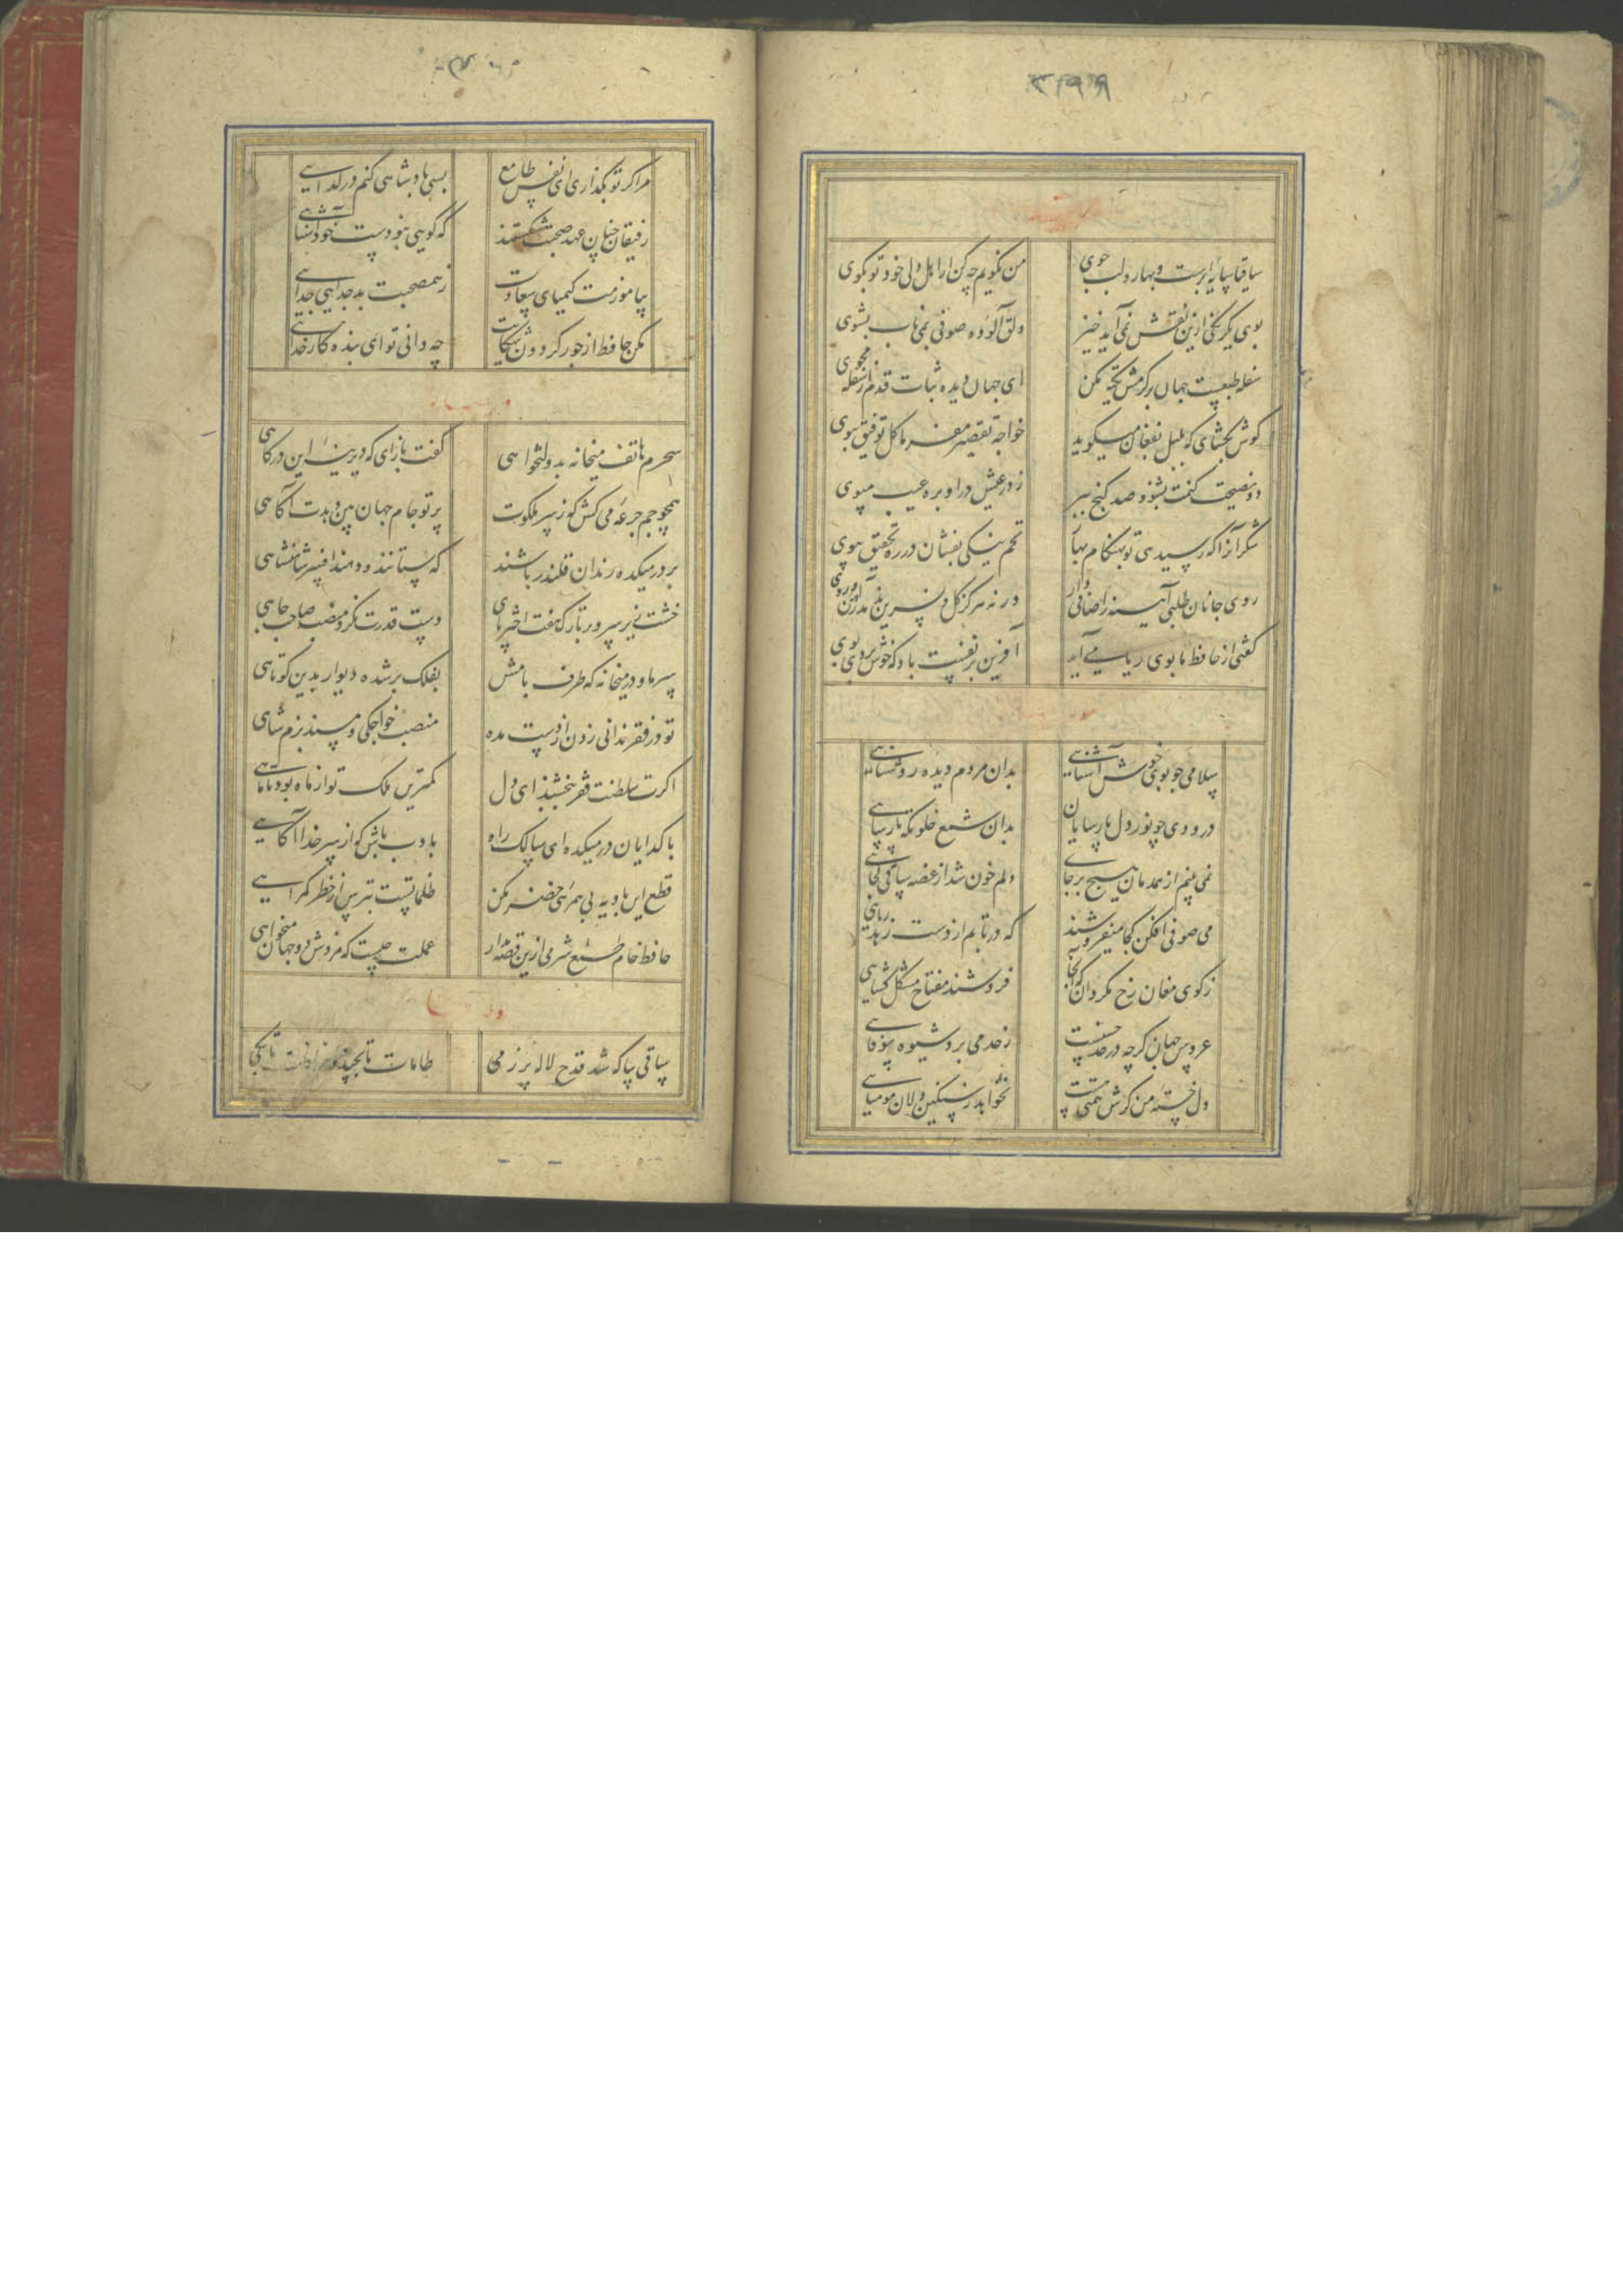 ساقیا سایه ابرست و بهار و لب جوی
من نکویم چه کن ار اهل دلی خود تو بکوی
بوی یکرنکی ازین نقش نمی آید خیز
دلق آلوده صوفی بمی ناب بشوی
سفله طبعست جهان بر کرمش تکیه مکن
ای جهان دیده ثبات قدم از سفله مجوی
کوش بکشای که بلبل بفغان میکوید
خواجه تقصیر مفرما کل توفیق ببوی
دو نصیحت کنمت بشنو و صد کنج ببر
ز در عیش درا و بره عیب مپوی
شکر آنرا که رسیدی تو بهنکام بهار
تخم نیکی بفشان در ره تحقیق بپوی
روی جانان طلبی آینه را صافی دار
ور نه هرکز کل و نسرین ندمد ز آهن و روی
کفتی از حافظ ما بوی ریا می آید
آفرین بر نفست باد که خوش بردی بوی
سلامی چو بوی خوش آشنایی
بدان مردم دیده روشنایی
درودی چو نور دل پارسایان
بدان شمع خلوتکه پارسایی
نمی بینم از همدمان هیچ بر جای
دلم خون شد از غصه ساقی کجایی
می صوفی افکن کجا میفروشند
که در تابم از دست زهد ریایی
ز کوی مغان رخ مکردان که آنجا
فروشند مفتاح مشکل کشایی
عروس جهان کرچه در حد حسنست
ز حد می برد شیوه بیوفایی
دل خسته من کرش همتی هست
نخواهد ز سنکین دلان مومیایی
مرا کر تو بکذاری ای نفس طامع
بسی پادشاهی کنم در کدایی
رفیقان چنان عهد صحبت شکستند
که کویی نبودست خود آشنایی
بیاموزمت کیمیای سعادت
ز همصحبت بد جدایی جدایی
مکن حافظ از جور کردون شکایت
چه دانی تو ای بنده کار خدایی
سحرم هاتف میخانه بدولتخواهی
کفت باز آی که دیرینه این درکاهی
همچو جم جرعه می کش که ز سر ملکوت
پرتو جام جهان بین دهدت آکاهی
بر در میکده رندان قلندر باشند
که ستانند و دهند افسر شاهنشاهی
خشت زیر سر و بر تارک هفت اختر پای
دست قدرت نکر و منصب صاحب جاهی
سر ما و در میخانه که طرف بامش
بفلک بر شده دیوار بدین کوتاهی
تو در فقر ندانی زدن از دست مده
منصب خواجکی و مسند بزم شاهی
اکرت سلطنت فقر ببخشند ای دل
کمترین ملک تو از ماه بود تا ماهی
با کدایان در میکده ای سالک راه
بادب باش کر از سر خدا آکاهی
قطع این بادیه بی همرهی خضر مکن
ظلماتست بترس از خطر کمراهی
حافظ خام طمع شرمی ازین قصه بدار
عملت چیست که مزدش دو جهان میخواهی
ساقی بیا که شد قدح لاله پر ز می
طامات تا بچند و خرافات تا بکی